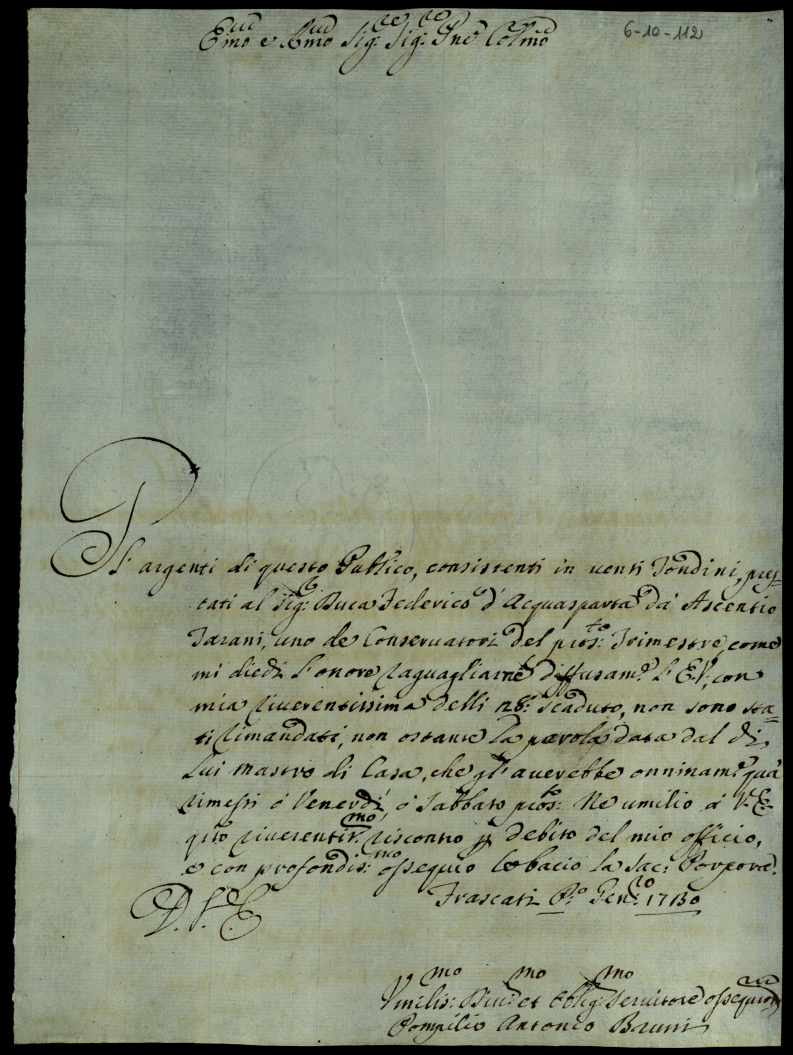 Em̃o e Rm̃o Sig:re Sig:re Pñe Colm̃o
6-10-112
Gl' argenti di questo Publico, consistenti in venti Tondini, pres-
tati al Sig: Duca Federico d'Acquasparta da' Ascentio
Tarani, uno de Conservatori del pros:to Trimestre, come
mi diedi l'onore raguagliarne diffusam:e l'E.V. con
mia riverentissima delli scaduto, non sono sta=
ti rimandati, non ostante la parola data dal di
lui mastro di Casa, che gl' averebbe onninam:e quà
rimessi ò Venerdì, ò Sabbato pros:o Ne umilio à V.E.
riverentis:mo riscontro p debito del mio officio,
e con profondis:mo ossequio le bacio la Sac: Porpora.
D. V. E. Frascati P.o Gen:ro 1730
Vmilis:mo Div:mo et Oblig:mo Servitore ossequiosm̃o
Pompilio Antonio Bruni